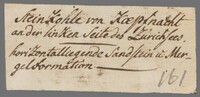 Stein Kohle von Kæpfnacht
an der linken Seite des Zürichsees
horizontalliegende Sandstein u. Mer-
gelformation
161